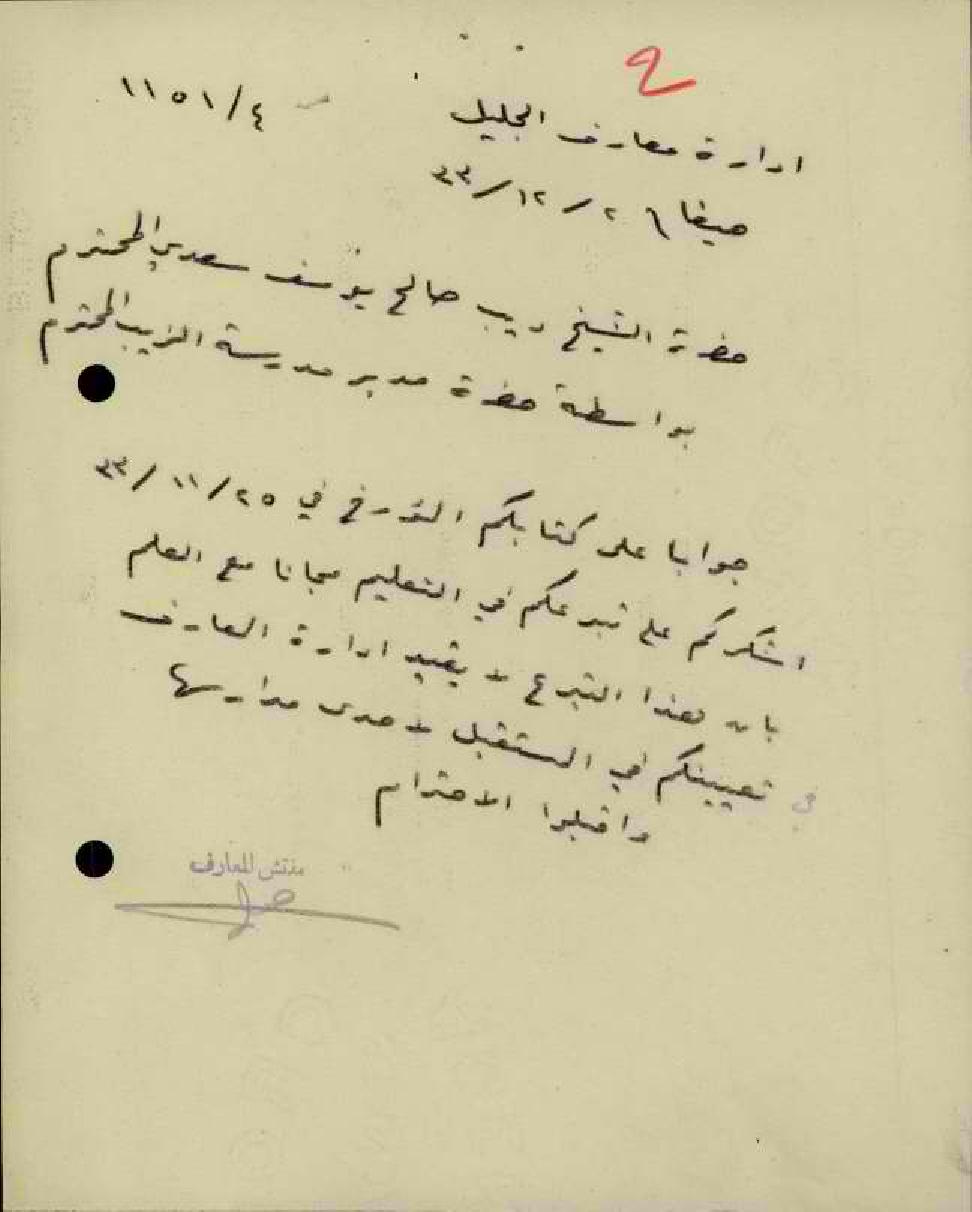 ٩
١١٥١/٤
ادارة معارف الجليل
حيفا ٢/١٢/٣٣
حضرة الشيخ ديب صالح يوسف سعدي المحترم
بواسطة حضرة مدير مدرسة الزيب المحترم
جوابا على كتابكم المؤرخ في ٢٥/١١/٣٣
اشكركم على تبرعكم في التعليم مجانا مع العلم
بان هذا التبرع لا يقيد ادارة المعارف
في تعيينكم في المستقبل لاحدى مدارسها
واقبلوا الاحترام
مفتش المعارف